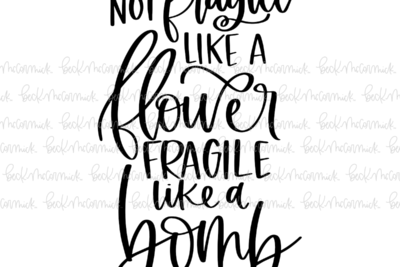 NOT fragile
LIKE A
flower
FRAGILE
like a
bomb